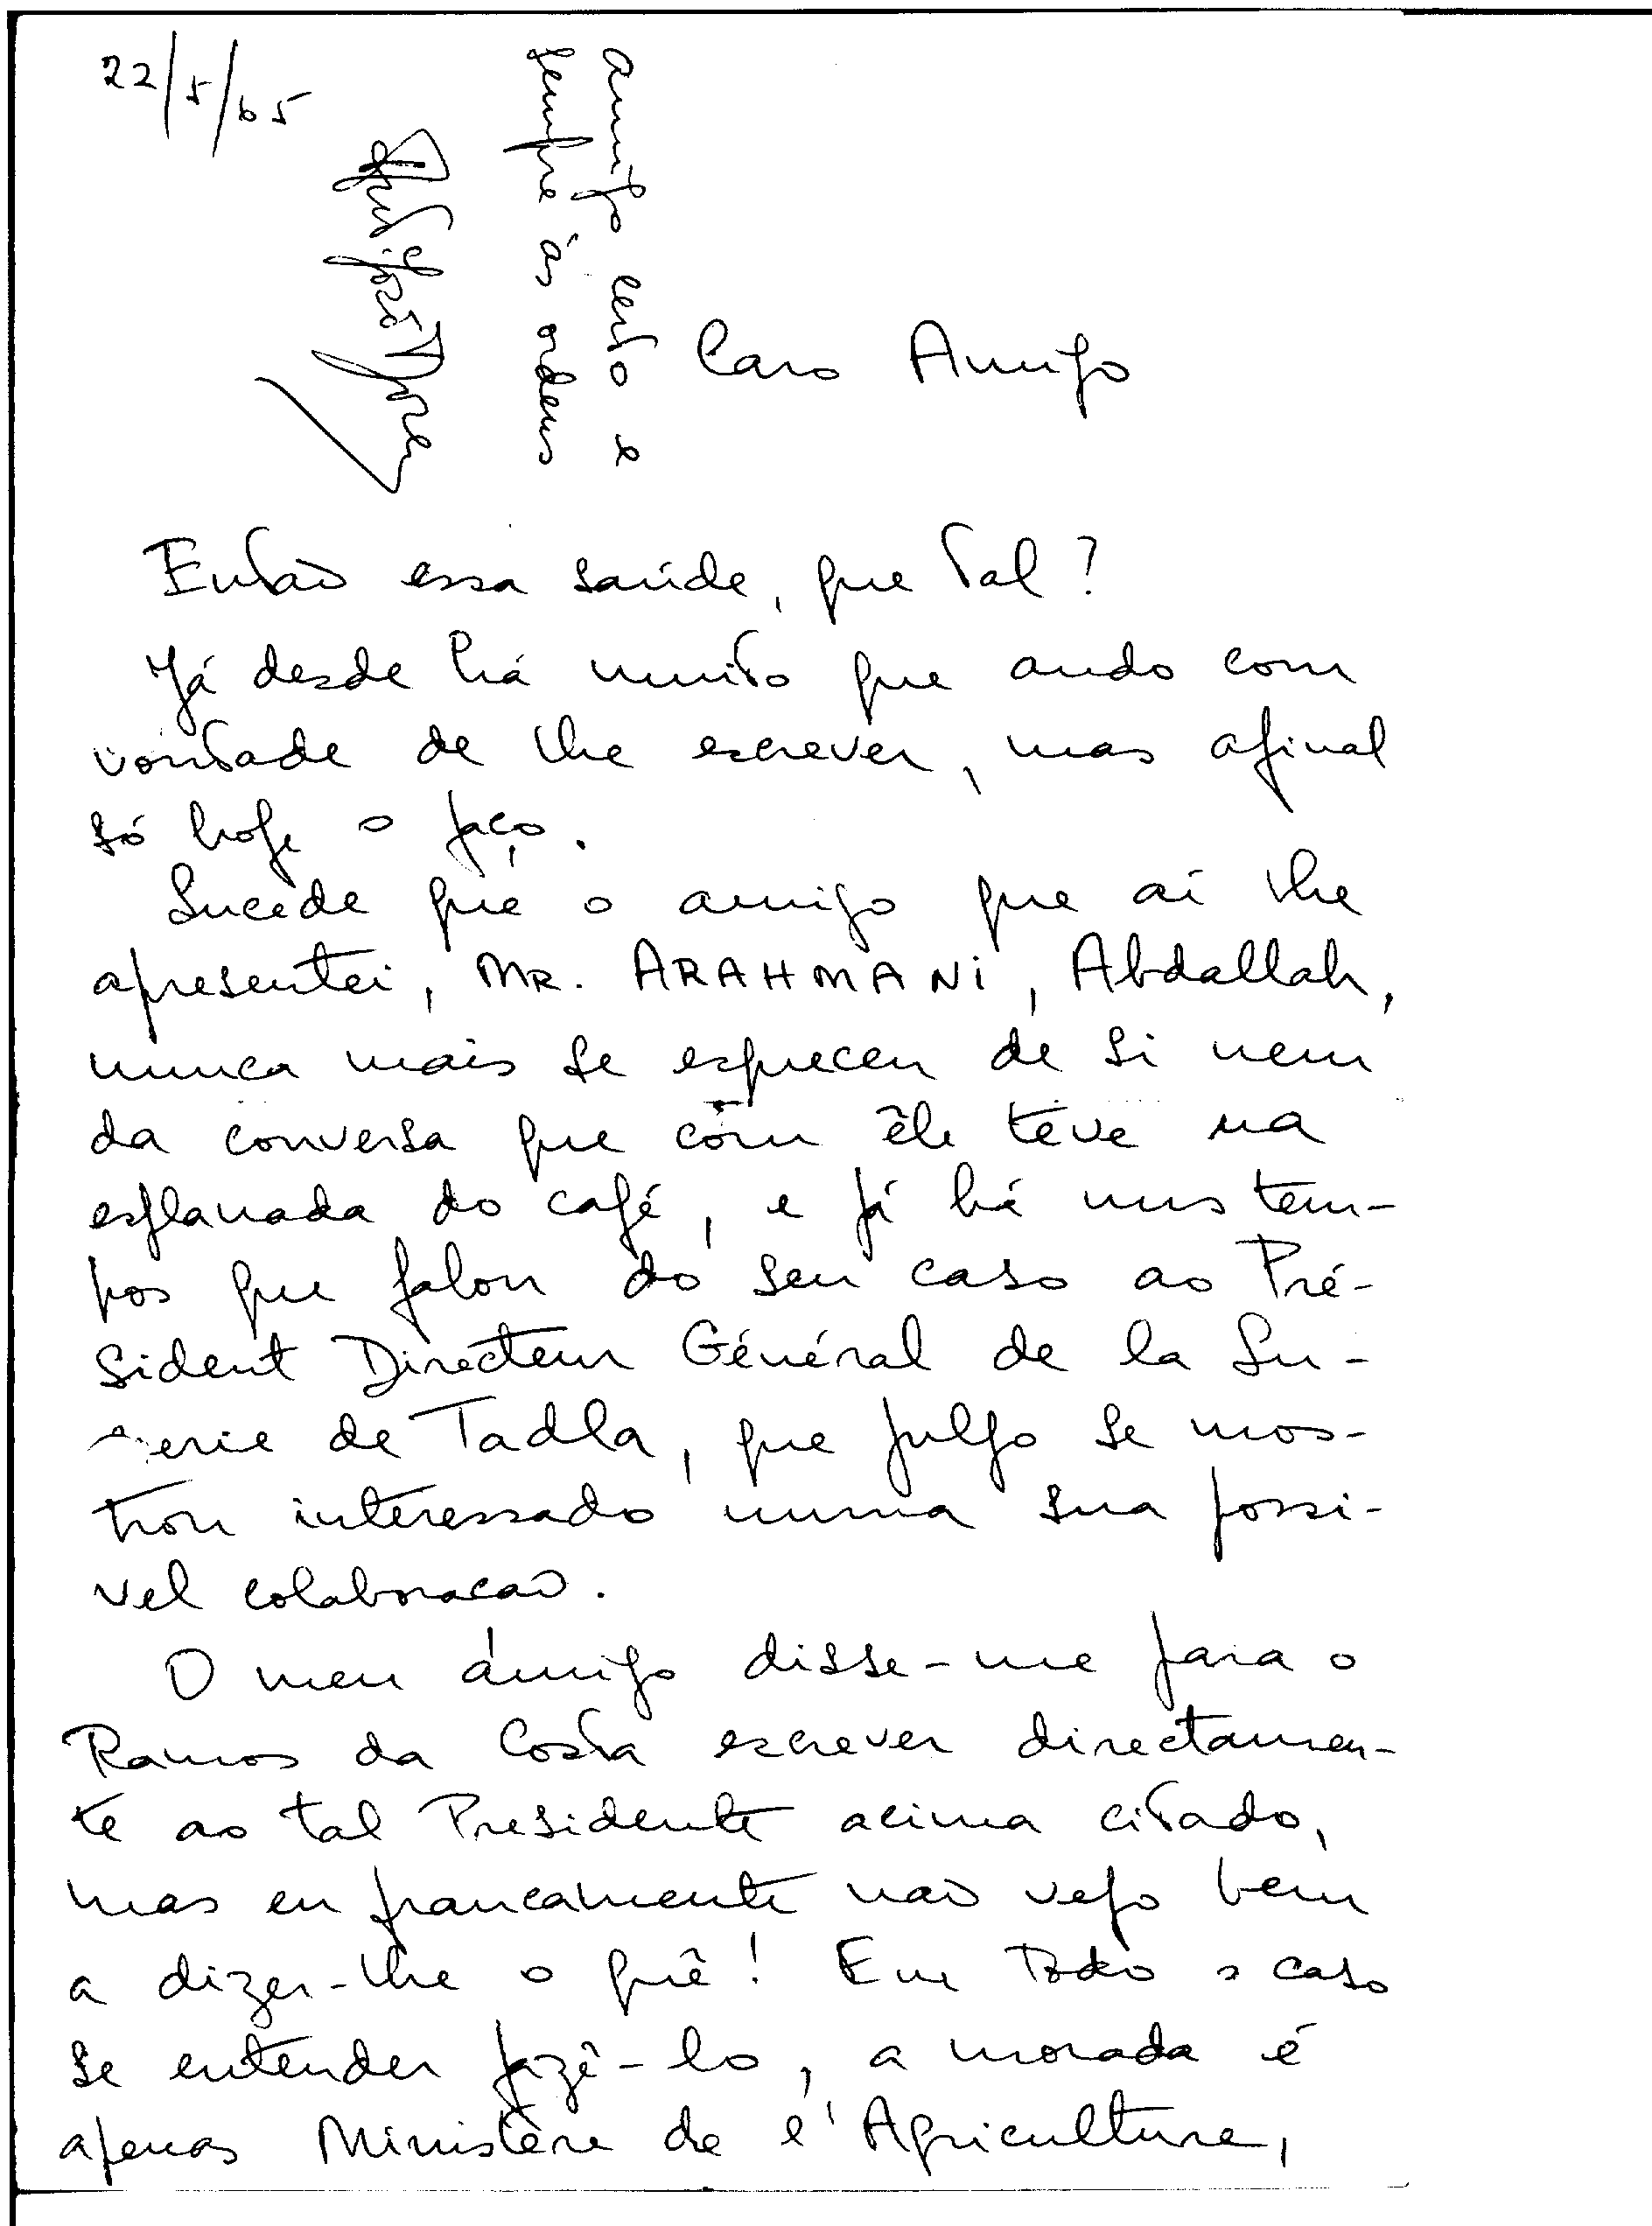 22/5/65
Caro Amigo
Então essa saúde, que tal?
Já desde há muito que ando com
vontade de lhe escrever, mas afinal
só hoje o faço.
Sucede que o amigo que aí lhe
apresentei, MR. ARAHMANi, Abdallah,
nunca mais se esqueceu de si nem
da conversa que com êle teve na
esplanada do café, e já há uns tem-
pos que falou do seu caso ao Pré-
sident Directeur Général de la Su-
crerie de Tadla, que julgo se mos-
trou interessado numa sua possi-
vel colaboracão.
O meu amigo disse-me para o
Ramos da Costa escrever directamen-
te ao tal Presidente acima citado,
mas eu francamente não vejo bem
a dizer-lhe o quê! Em todo o caso
se entender fazê-lo, a morada é
apenas Ministère de l'Agriculture,
amigo certo e
sempre às ordens